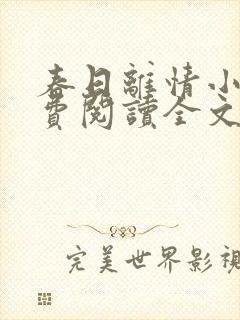 春日離情小
費閱讀全文
完美世界影視